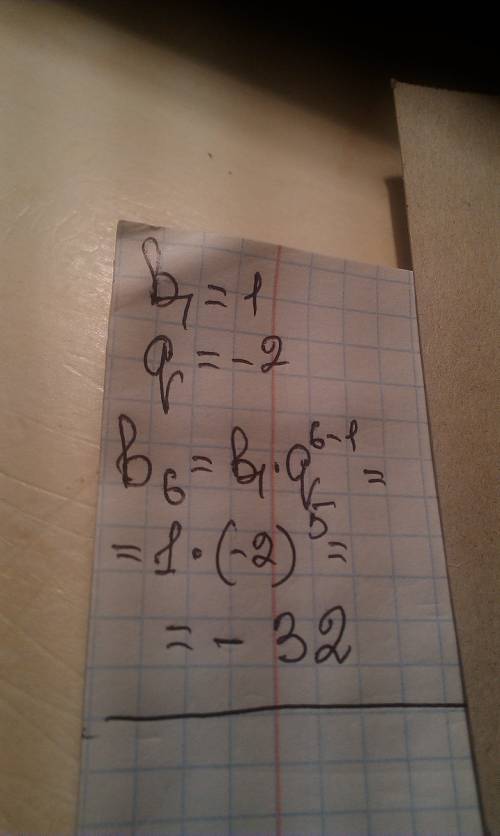 b₁ = 1
q = -2
b₆ = b₁ · q⁶⁻¹ =
= 1 · (-2)⁵ =
= - 32